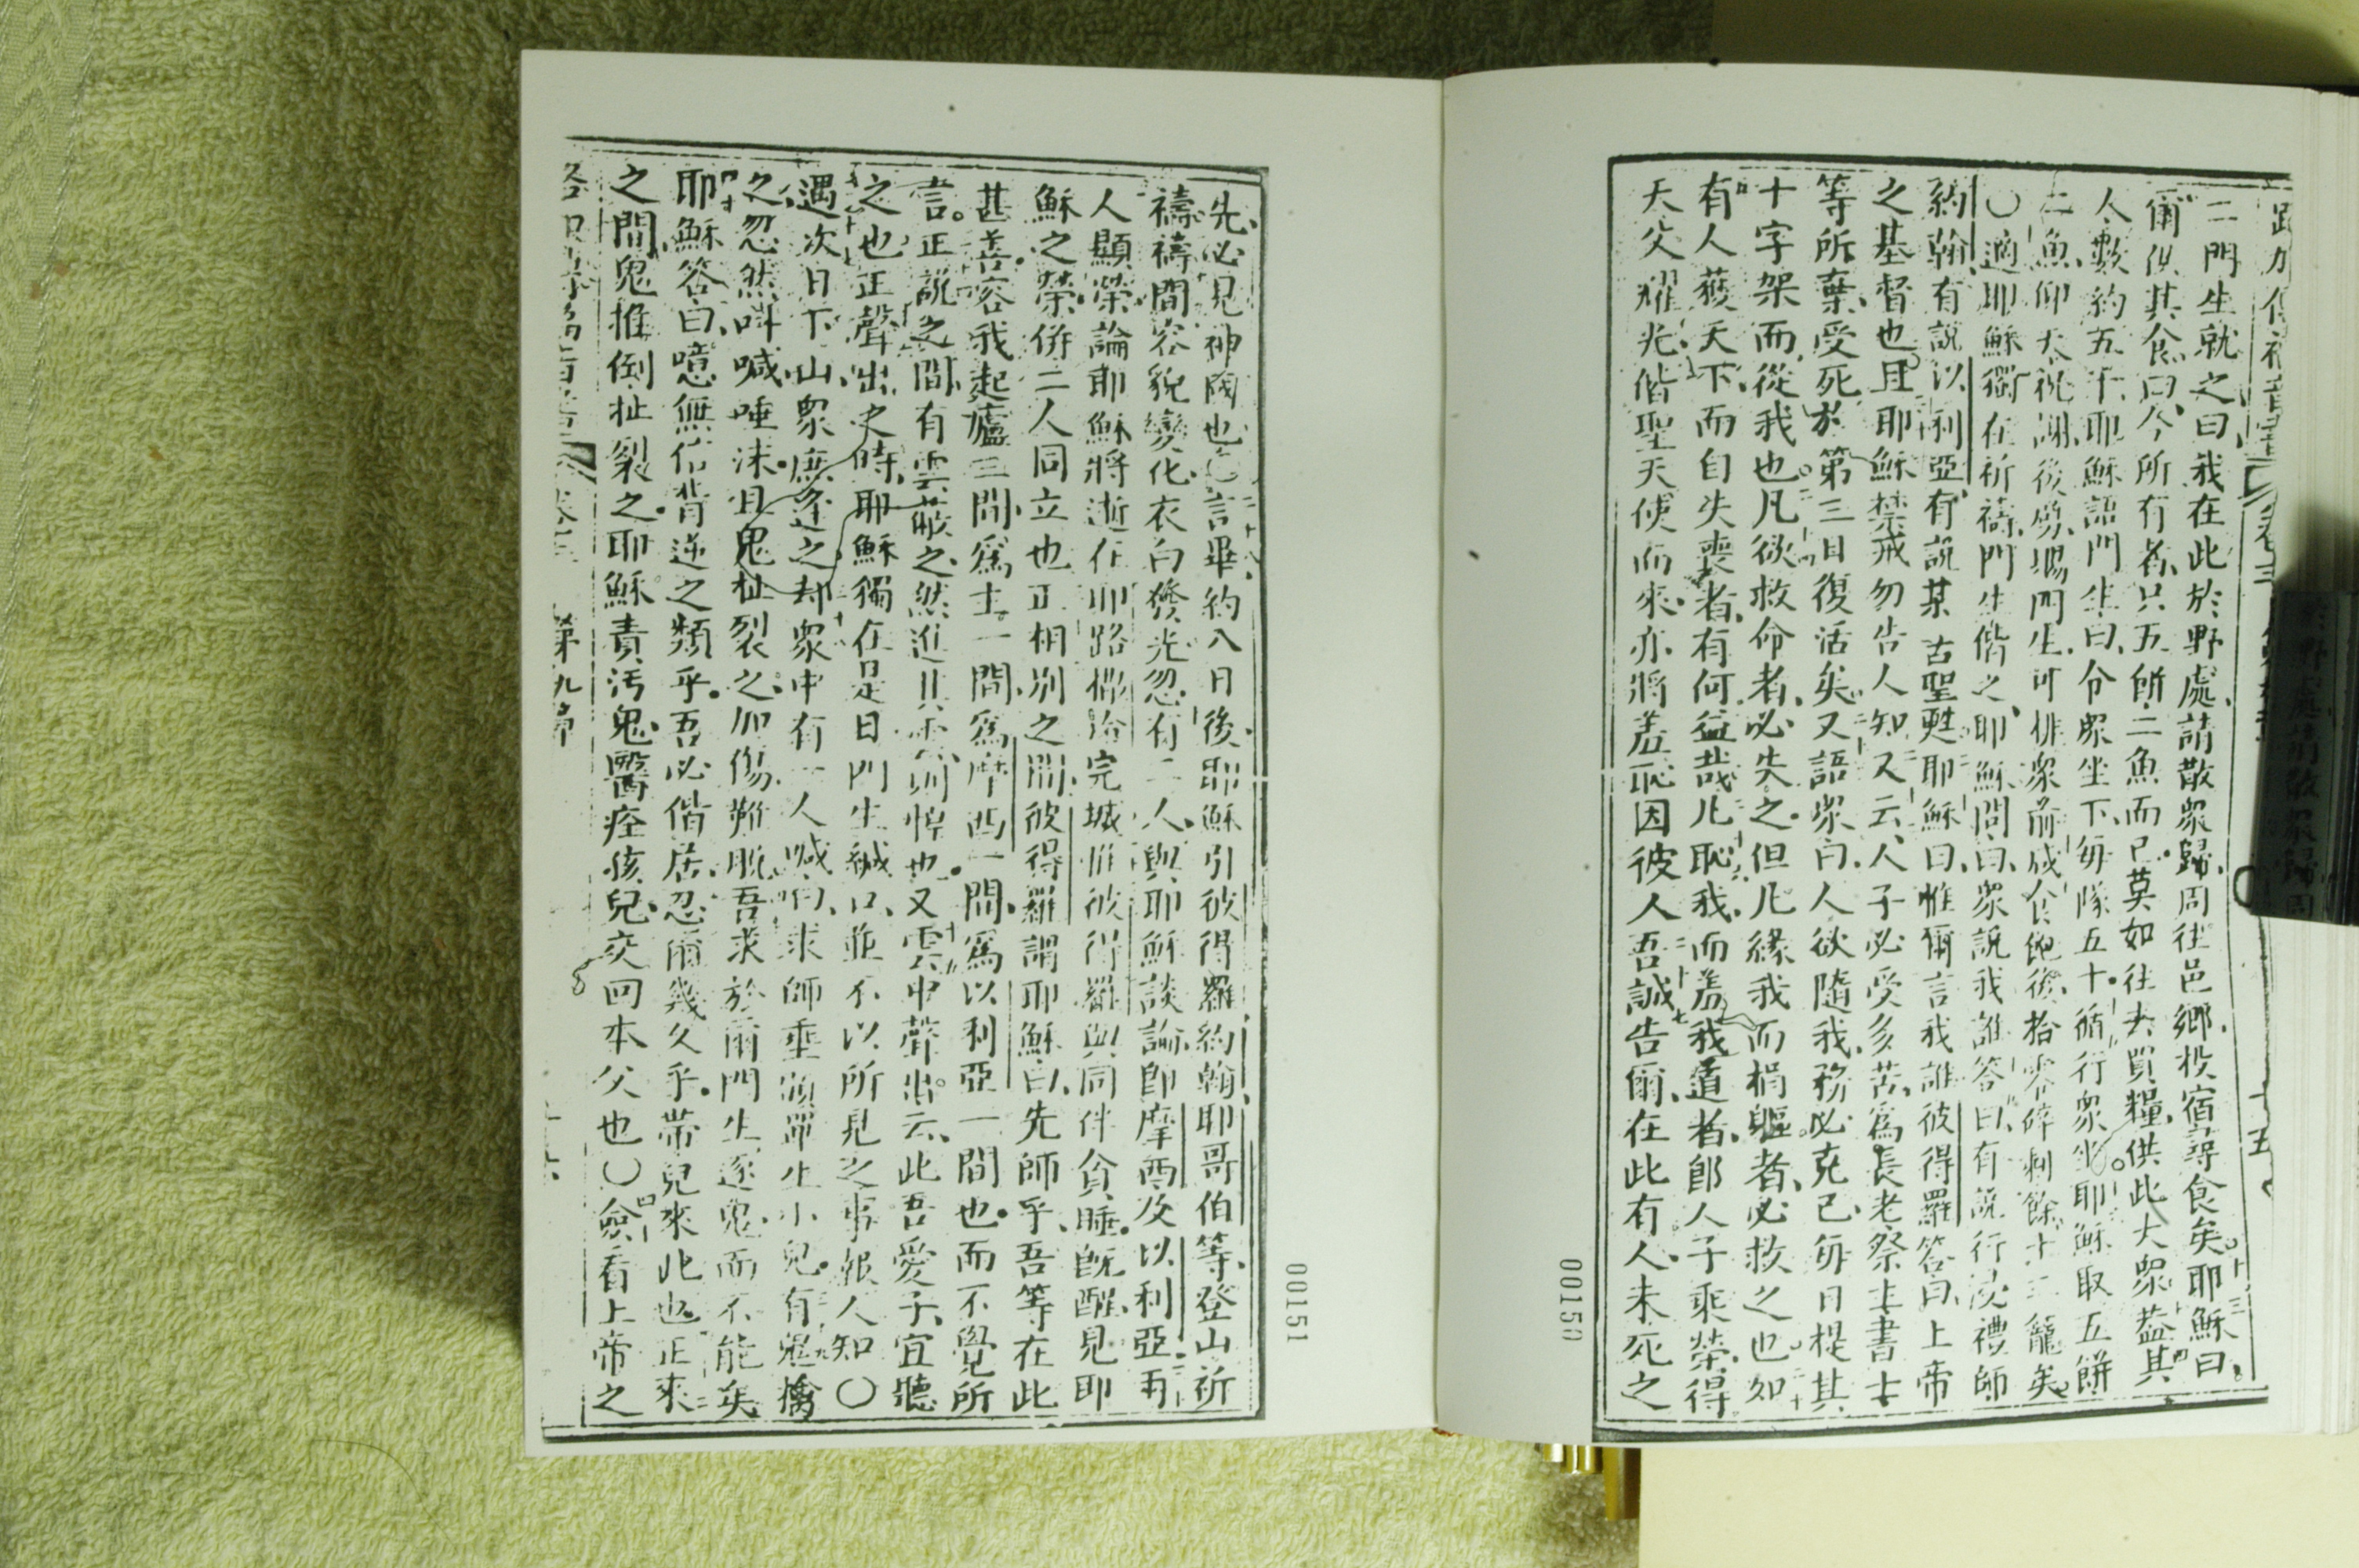 路加傳福音書 卷三
十五
二門生就之曰我在此於野處請散眾歸周往邑鄉投宿尋食矣耶穌曰
爾供其食曰今所有者只五餅二魚而已莫如往去買糧供此大眾蓋其
人數約五千耶穌語門生曰令眾坐下每隊五十循行眾坐耶穌取五餅
二魚仰天祝謝後劈賜門生可排眾前咸食飽後拾零碎剩餘十二籠矣
〇適耶穌獨在祈禱門生偕之耶穌問曰眾說我誰答曰有說行浸禮師
約翰有說以利亞有說某古聖甦耶穌曰惟爾言我誰彼得羅答曰上帝
之基督也且耶穌禁戒勿告人知又云人子必受多苦為長老祭士書士
等所棄受死於第三日復活矣又語眾曰人欲隨我務必克己每日提其
十字架而從我也凡欲救命者必失之但凡緣我而捐軀者必救之也如
有人獲天下而自失喪者有何益哉凡恥我而羞我道者卽人子乘榮得
天父耀光偕聖天使而來亦將羞恥因彼人吾誠告爾在此有人未死之
00150
先必見神國也言畢約八日後耶穌引彼得羅約翰耶哥伯等登山祈
禱禱間容貌變化衣白發光忽有二人與耶穌談論卽摩西及以利亞再
人顯榮論耶穌將逝在耶路撒冷完城惟彼得羅與同伴貪睡旣醒見耶
穌之榮併二人同立也正相別之間彼得羅謂耶穌曰先師乎吾等在此
甚善容我起廬三間為主一間為摩西一間為以利亞一間也而不覺所
言正說之間有雲蔽之然進其雲則悼也又雲中聲出云此吾愛子宜聽
之也正聲出之時耶穌獨在是日門生緘口並不以所見之事報人知〇
遇次日下山眾庶逢之却眾中有一人喊叫求師垂顧單生小兒有鬼擒
之忽然叫喊唾沫且鬼扯裂之加傷難脫吾求於爾門生逐鬼而不能矣
耶穌答曰噫無信背逆之類乎吾必偕居忍爾幾久乎帶兒來此也正來
之間鬼推倒扯裂之耶穌責污鬼醫痊孩兒交回本父也〇僉看上帝之
路加傳福音書 卷三 第九節
十六
00151